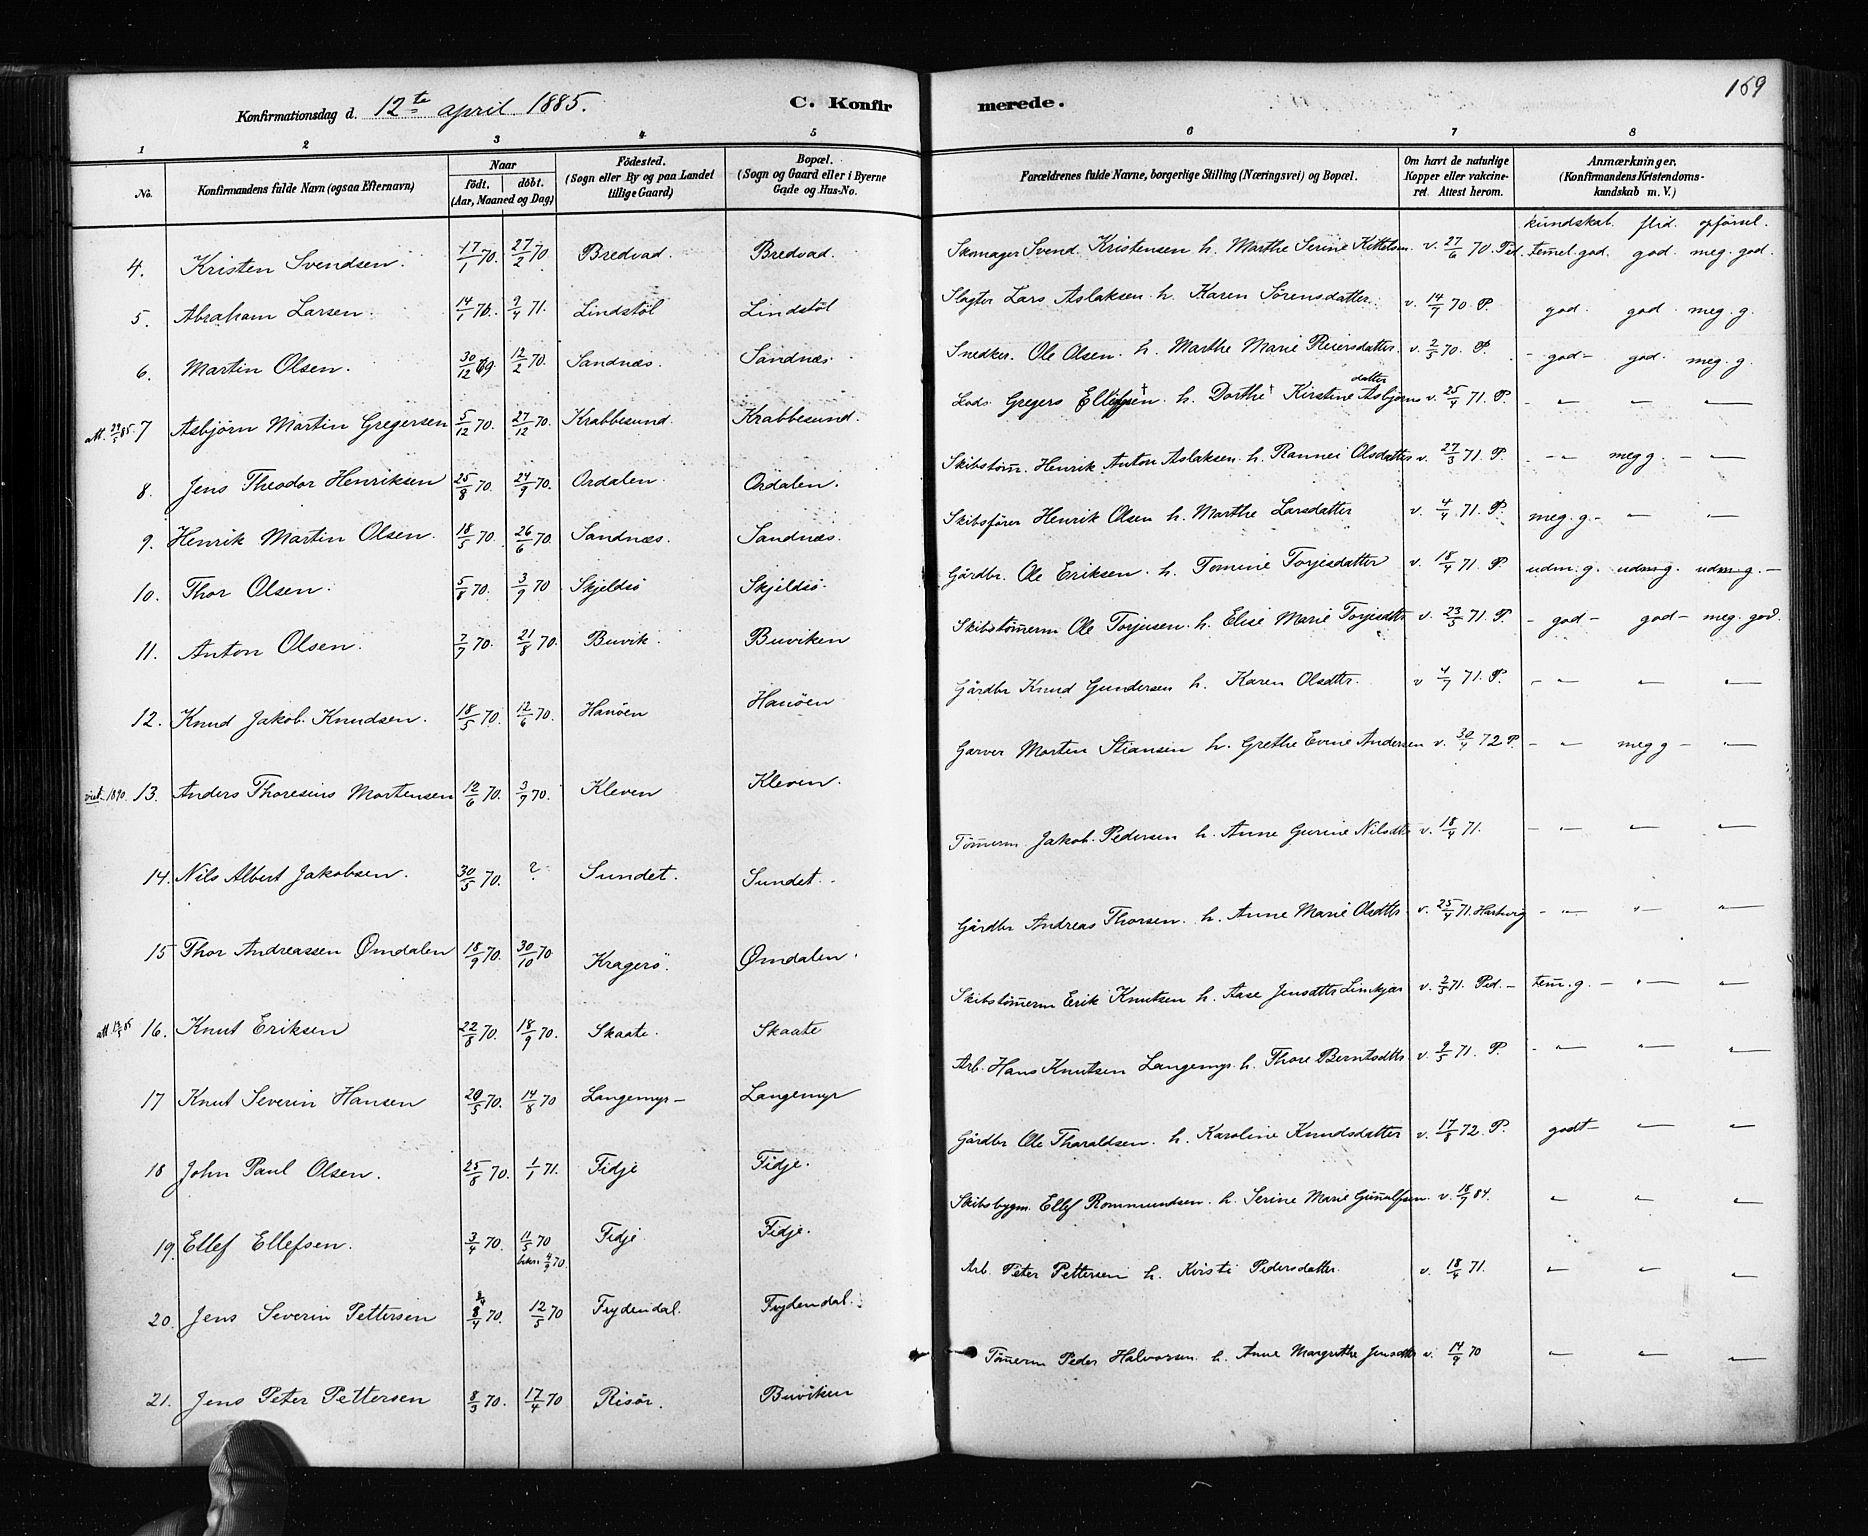 159
Konfirmationsdag d. 12te april 1885. C. Konfirmerede.
1 2 3 4 5 6 7 8
No. Konfirmandens fulde Navn (ogsaa Efternavn) Naar født, døbt. (Aar, Maaned og Dag) Fødested. (Sogn eller By og paa Landet tillige Gaard) Bopæl. (Sogn og Gaard eller i Byerne Gade og Hus-No. Forældrenes fulde Navne, borgerlige Stilling (Næringsvei) og Bopæl. Om havt de naturlige Kopper eller vakcineret. Attest herom. Anmærkninger. (Konfirmandens Kristendomskundskab m. V.)
kundskab. flid. opførsel.
4. Kristen Svendsen. 17/1 70. 27/2 70 Bredvad. Bredvad. Skomager Svend Kristensen h. Marthe Serine Kittelsen v. 27/6 70 Ped. temel. god. god. meg. god.
5. Abraham Larsen. 14/1 70. 2/4 71. Lindstøl Lindstøl Slagter Lars Aslaksen h. Karen Sørensdatter. v. 14/7 70 P. god. god. meg. g.
6. Martin Olsen. 30/12 69 12/2 70. Sandnæs. Sandnæs. Snedker. Ole Olsen. h. Marthe Marie Reiersdatter. v. 2/5 70. P. - god - god. meg. g.
att. 22/5 85. 7 Asbjørn Martin Gregersen 5/12 70. 27/12 70. Krabbesund. Krabbesund. Lods Gregers Ellefsen † h. Dorthe † Kirstine Asbjørnsdatter v. 25/4 71. P. - " - " - "
8. Jens Theodor Henriksen 25/8 70. 24/9 70. Ordalen. Ordalen. Skibstøm. Henrik Anton Aslaksen h. Rannei Olsdatter v. 27/3 71. P. - " meg g. - "
9. Henrik Martin Olsen. 18/5 70. 26/6 70. Sandnæs. Sandnæs. Skibsfører Henrik Olsen h. Marthe Larsdatter v. 4/4 71. P. meg. g. - " "
10. Thor Olsen. 5/8 70. 3/9 70 Skjeldsø Skjeldsø. Gårdbr. Ole Eriksen. h. Tomine Torjesdatter v. 18/4 71. P. udm. g. udm. g. udm. g. -
11. Anton Olsen. 7/7 70. 21/8 70. Buvik. Buviken Skibstømerm Ole Torjusen. h. Elise Marie Torjesdttr v. 23/5 71. P. - god - god - meg. god.
12. Knud Jakob Knudsen. 18/5 70. 12/6 70. Hanøen Hanøen Gårdbr Knud Gundersen h. Karen Olsdttr. v 4/7 71. P. - " " "
viet. 1890. 13. Anders Thoresius Mortensen 12/6 70. 3/7 70. Kleven Kleven. Garver Morten Stiansen h. Grethe Evine Andersen v. 30/4 72 P. - " meg g - "
14. Nils Albert Jakobsen. 30/5 70. ? Sundet. Sundet. Tømerm. Jakob. Pedersen h. Anne Gurine Nilsdttr v. 18/4 71. - " " "
15 Thor Andreassen Ømdalen 18/9 70. 30/10 70 Kragerø. Ømdalen. Gårdbr Andreas Thorsen. h. Anne Marie Olsdttr v. 25/4 71. Hartvig - " " "
att. 16. Knut Eriksen 22/8 70. 18/9 70. Skaate. Skaate Skibstømerm Eerik Knutsen h. Aase Jensdttr Linkjær v. 2/5 71. Ped. - tem. g. - " "
17 Knut Severin Hansen 20/5 70. 14/8 70 Langemyr - Langemyr Arb. Hans Knutsen Langemyr. h. Thore Berntsdttr. v. 2/5 71. P. - " " "
18 John Paul Olsen. 25/8 70. 1/1 71. Fidje Fidje. Gårdbr Ole Tharaldsen. h. Karoline Knudsdatter v. 17/8 72. P. godt - " "
19. Ellef Ellefsen. 3/4 70. 11/5 70 bekr. 4/9 70. Fidje Fidje. Skibsbygm. Ellef Rommundsen. h. Serine Marie Gunulfsen. v. 18/7 84. " " "
20. Jens Severin Pettersen 8/4 70. 12/5 70 Frydendal. Frydendal. Arb. Peter Pettersen h. Kirsti Pedersdatter. v. 18/4 71. " " "
21. Jens Peter Pettersen 8/3 70. 17/4 70 Risør. Buviken Tømerm Peder Halvorsen h. Anne Margrethe Jensdttr v. 14/9 70 " " "